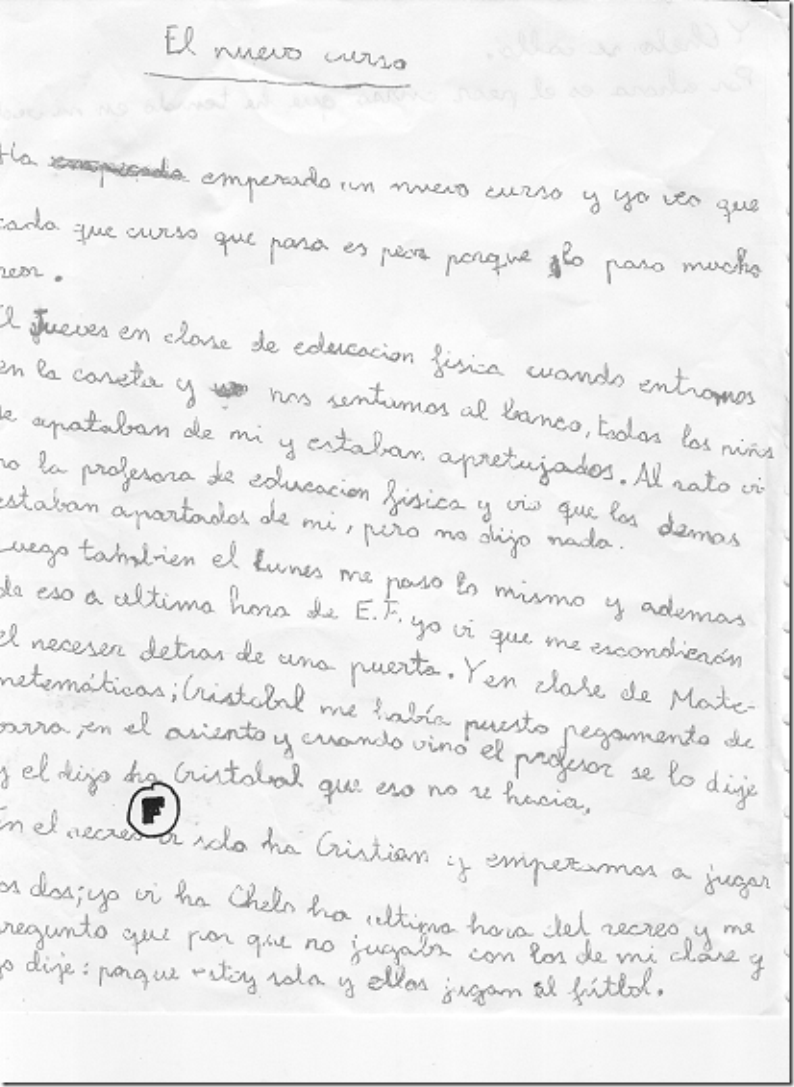 El nuevo curso
Ha empezado un nuevo curso y yo veo que
cada que curso que pasa es peor porque lo paso mucho
peor.
El Jueves en clase de educacion fisica cuando entramos
en la caseta y nos sentamos al banco, todos los niños
se apataban de mi y estaban apretujados. Al rato vi
no la profesora de educacion fisica y vio que los demas
estaban apartados de mi, pero no dijo nada.
Luego tambien el Lunes me paso lo mismo y ademas
de eso a ultima hora de E.F. yo vi que me escondierón
el neceser detras de una puerta. Y en clase de Mate-
metemáticas; Cristobal me había puesto pegamento de
barra, en el asiento y cuando vino el profesor se lo dije
y el dijo ha Cristobal que eso no se hacia,
F
En el recreo vi solo ha Cristian y empezamos a jugar
os dos; yo vi ha Chelo ha ultima hora del recreo y me
pregunto que por que no jugaba con los de mi clase y
yo dije: porque estoy solo y ellos jugan al fútbol.